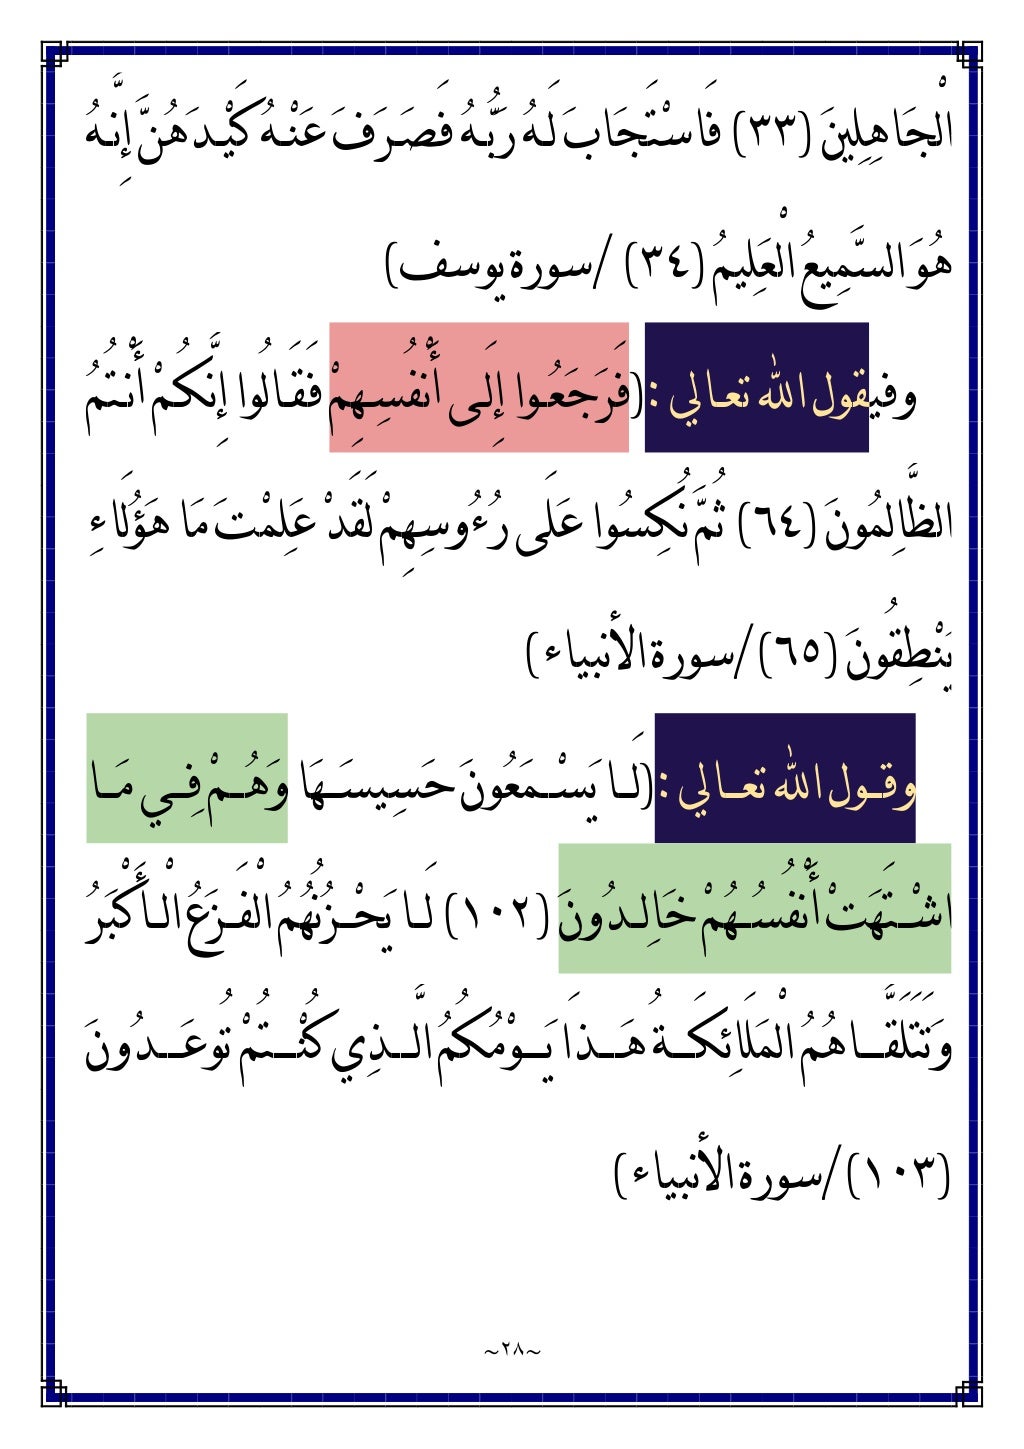 الْجَاهِلِينَ (٣٣) فَاسْتَجَابَ لَهُ رَبُّهُ فَصَرَفَ عَنْهُ كَيْدَهُنَّ إِنَّهُ
هُوَ السَّمِيعُ الْعَلِيمُ (٣٤) /سورة يوسف)
وفيقول الله تعالي :(فَرَجَعُوا إِلَى أَنفُسِهِمْ فَقَالُوا إِنَّكُمْ أَنتُمُ
الظَّالِمُونَ (٦٤) ثُمَّ نُكِسُوا عَلَى رُءُوسِهِمْ لَقَدْ عَلِمْتَ مَا هَؤُلَاءِ
يَنْطِقُونَ (٦٥)/سورة الأنبياء)
وقول الله تعالي :(لَا يَسْمَعُونَ حَسِيسَهَا وَهُمْ فِي مَا
اشْتَهَتْ أَنفُسُهُمْ خَالِدُونَ (١٠٢) لَا يَحْزُنُهُمُ الْفَزَعُ الْأَكْبَرُ
وَتَتَلَقَّاهُمُ الْمَلَائِكَةُ هَذَا يَوْمُكُمُ الَّذِي كُنْتُمْ تُوعَدُونَ
(١٠٣)/سورة الأنبياء)
~٢٨~